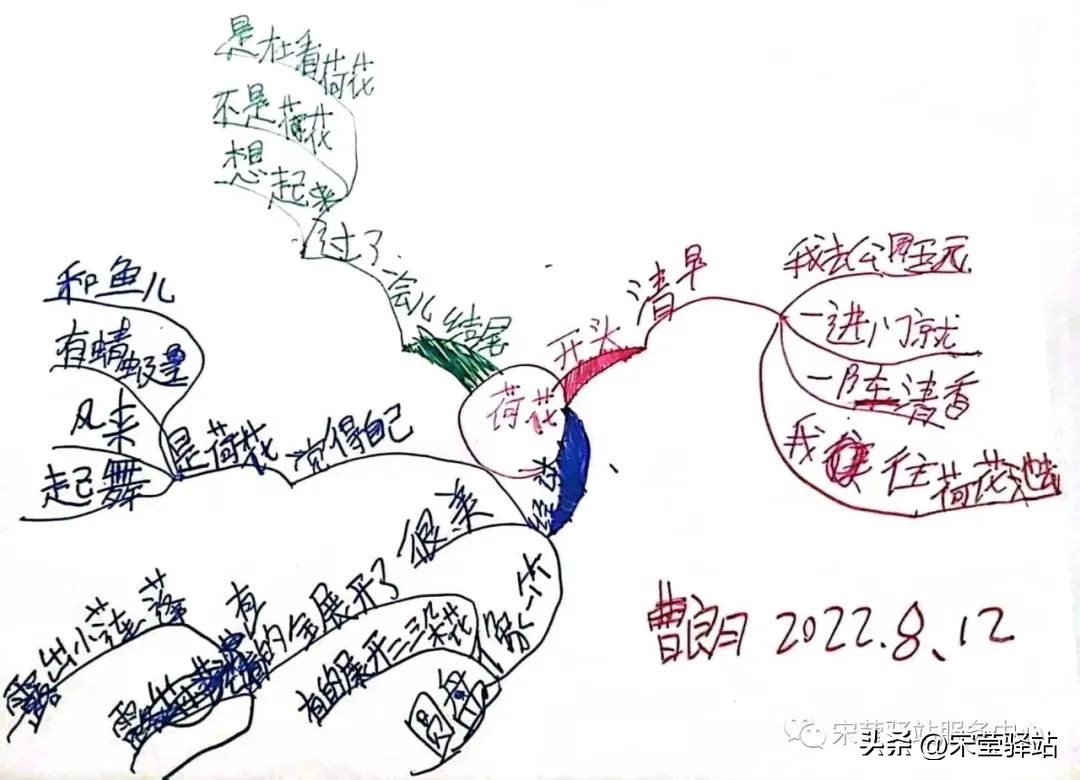 荷花
开头
清早
我去公园玩
一进门就
一阵清香
我 往荷花池去
经过
很美
像一个
圆盘
有的展开三朵花
有的全展开了
露出小莲蓬
觉得自己
是荷花
和鱼儿
有蜻蜓
风来
起舞
结尾
过了一会儿
想起来
不是荷花
是在看荷花
曹良月 2022.8.12
宋莹驿站服务中心
头条 @宋莹驿站